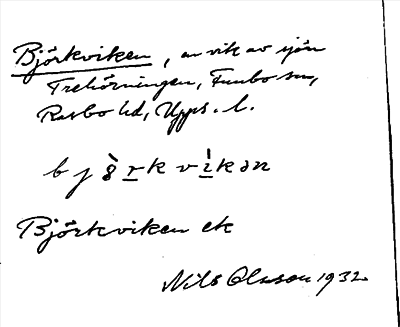 Björkviken, en vik av sjön
Trehörningen, Funbo sn,
Rasbo hd, Upps. l.
Björkviken etc
Nils Olsson 1932